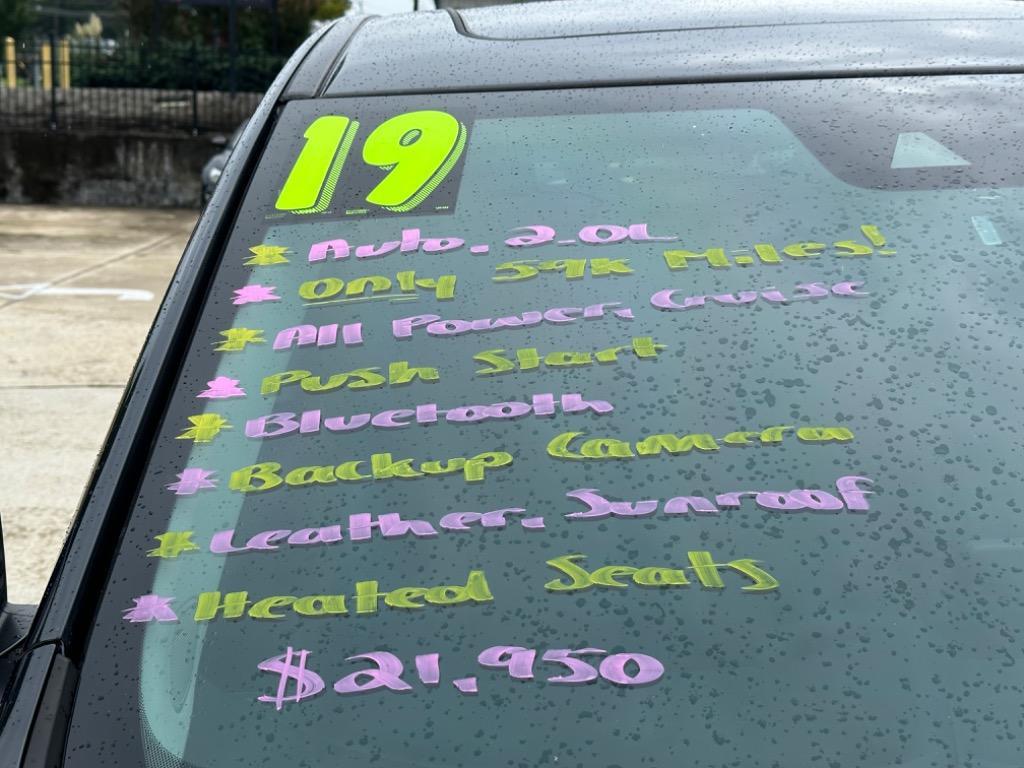 19
Auto. 2.0L
Only 59K Miles!
All Power, Cruise
Push Start
Bluetooth
Backup Camera
Leather, Sunroof
Heated Seats
$21,950